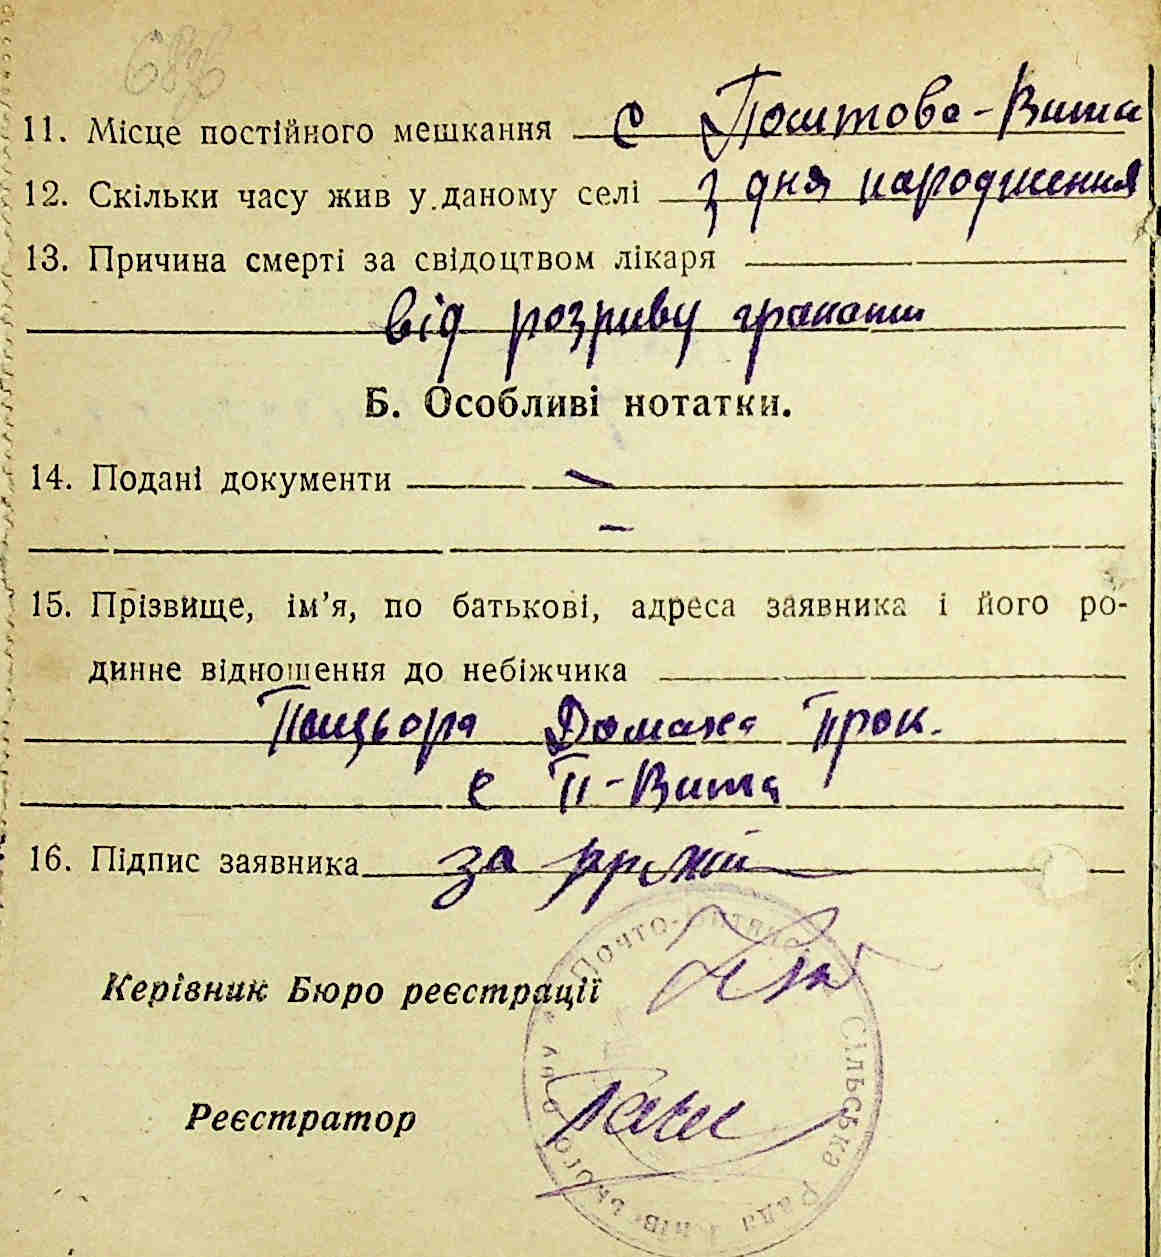 11. Місце постійного мешкання с Поштова-Вита
12. Скільки часу жив у даному селі з дня народження
13. Причина смерті за свідоцтвом лікаря
від розриву гранати
Б. Особливі нотатки.
14. Подані документи —
—
15. Прізвище, ім’я, по батькові, адреса заявника і його ро-
динне відношення до небіжчика
Домаха Прок.
с П-Вита
16. Підпис заявника за
Керівник Бюро реєстрації
Реєстратор
Сільська Рада